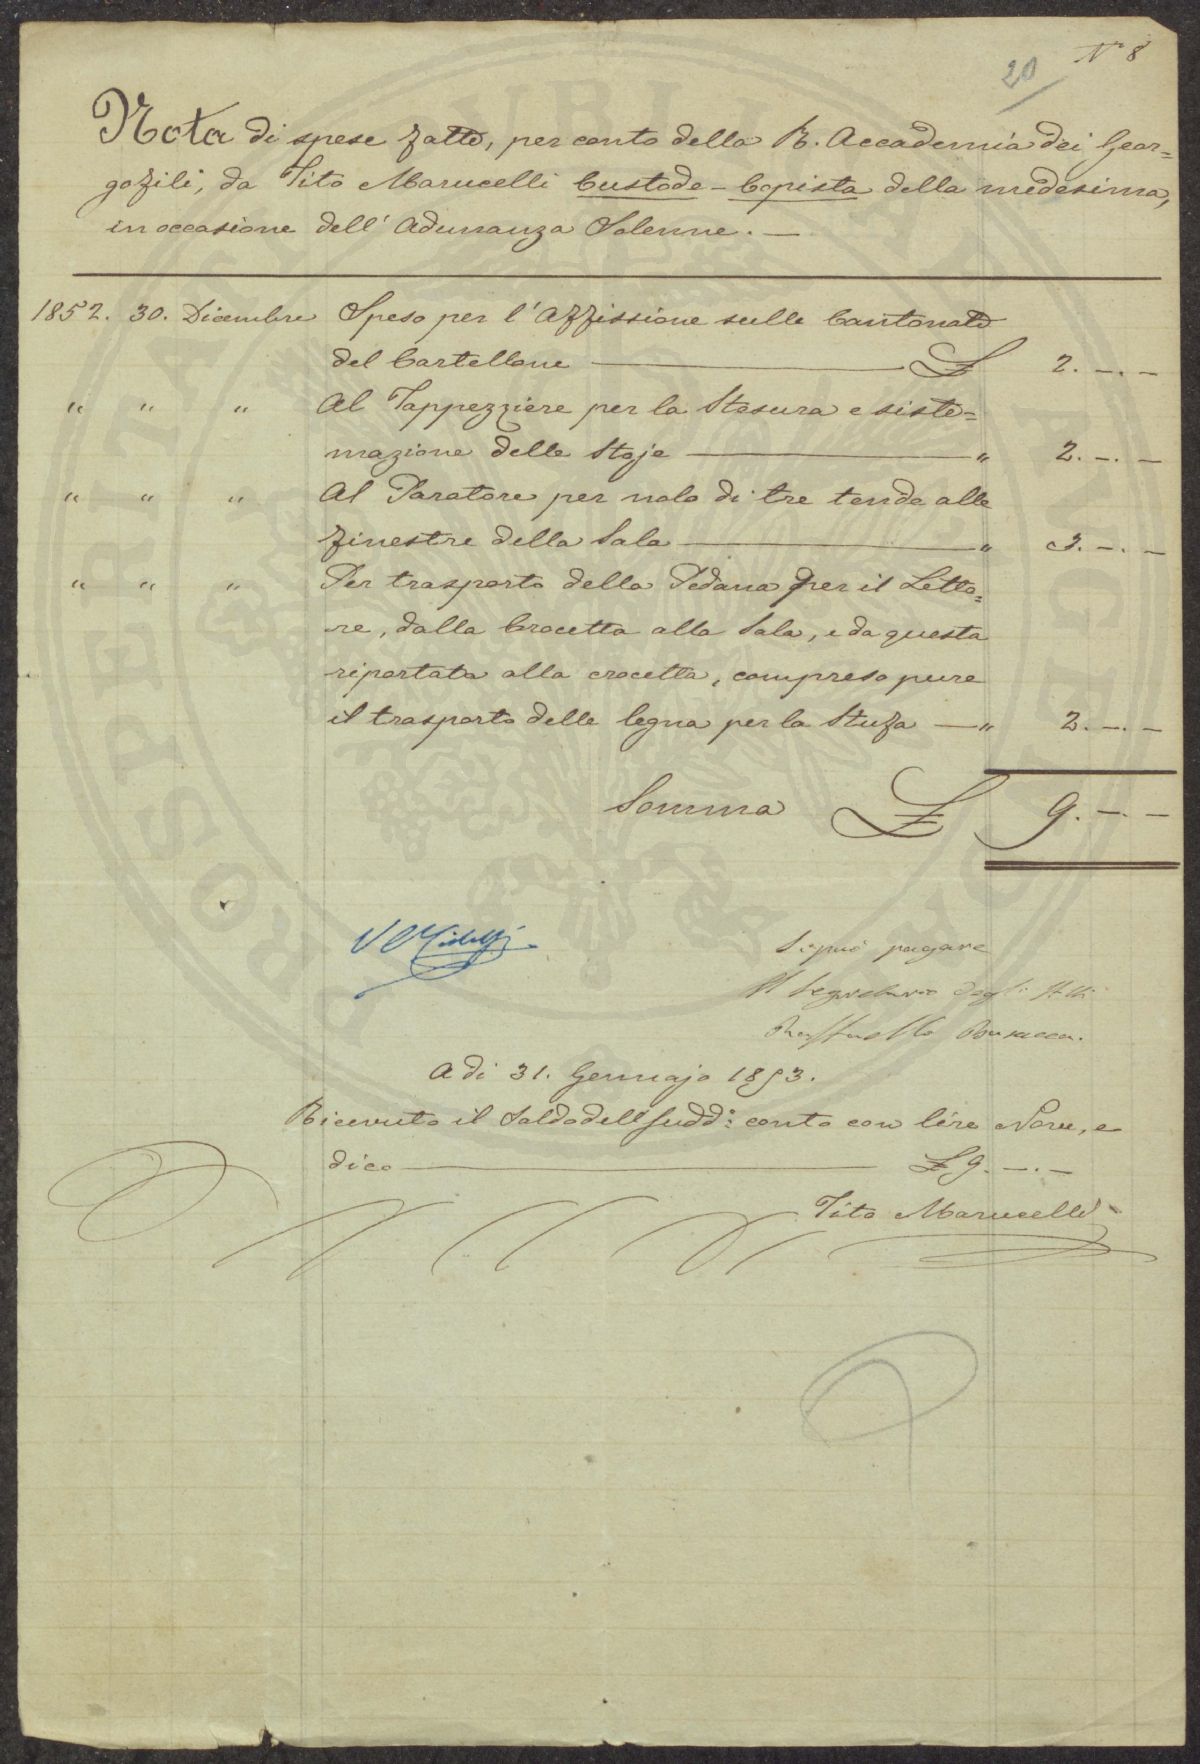 N.° 8
20
Nota di spese fatte, per conto della R. Accademia dei Geor=
gofili, da Tito Marucelli Custode-Copista della medesima,
in occasione dell'Adunanza Solenne. —
1852. 30. Dicembre Speso per l'Affissione sulle Cantonate
del Cartellone £ 2. –. –
" " " Al Tappezziere per la Stesura e siste=
mazione delle Stoje " 2. –. –
" " " Al Paratore per nolo di tre tende alle
finestre della Sala " 3. –. –
" " " Per trasporto della Pedana per il Letto=
re, dalla Crocetta alla Sala, e da questa
riportata alla crocetta, compreso pure
il trasporto delle legna per la Stufa — " 2. –. –
Somma £ 9. –. –
Si può pagare
Il Segretario degli Atti
Raffaello Busacca.
A di 31. Gennajo 1853.
Ricevuto il Saldo dell sudd:° conto con lire Nove, e
dico £ 9. –. –
Tito Marucelli
PROSPERITATI PUBLICAE